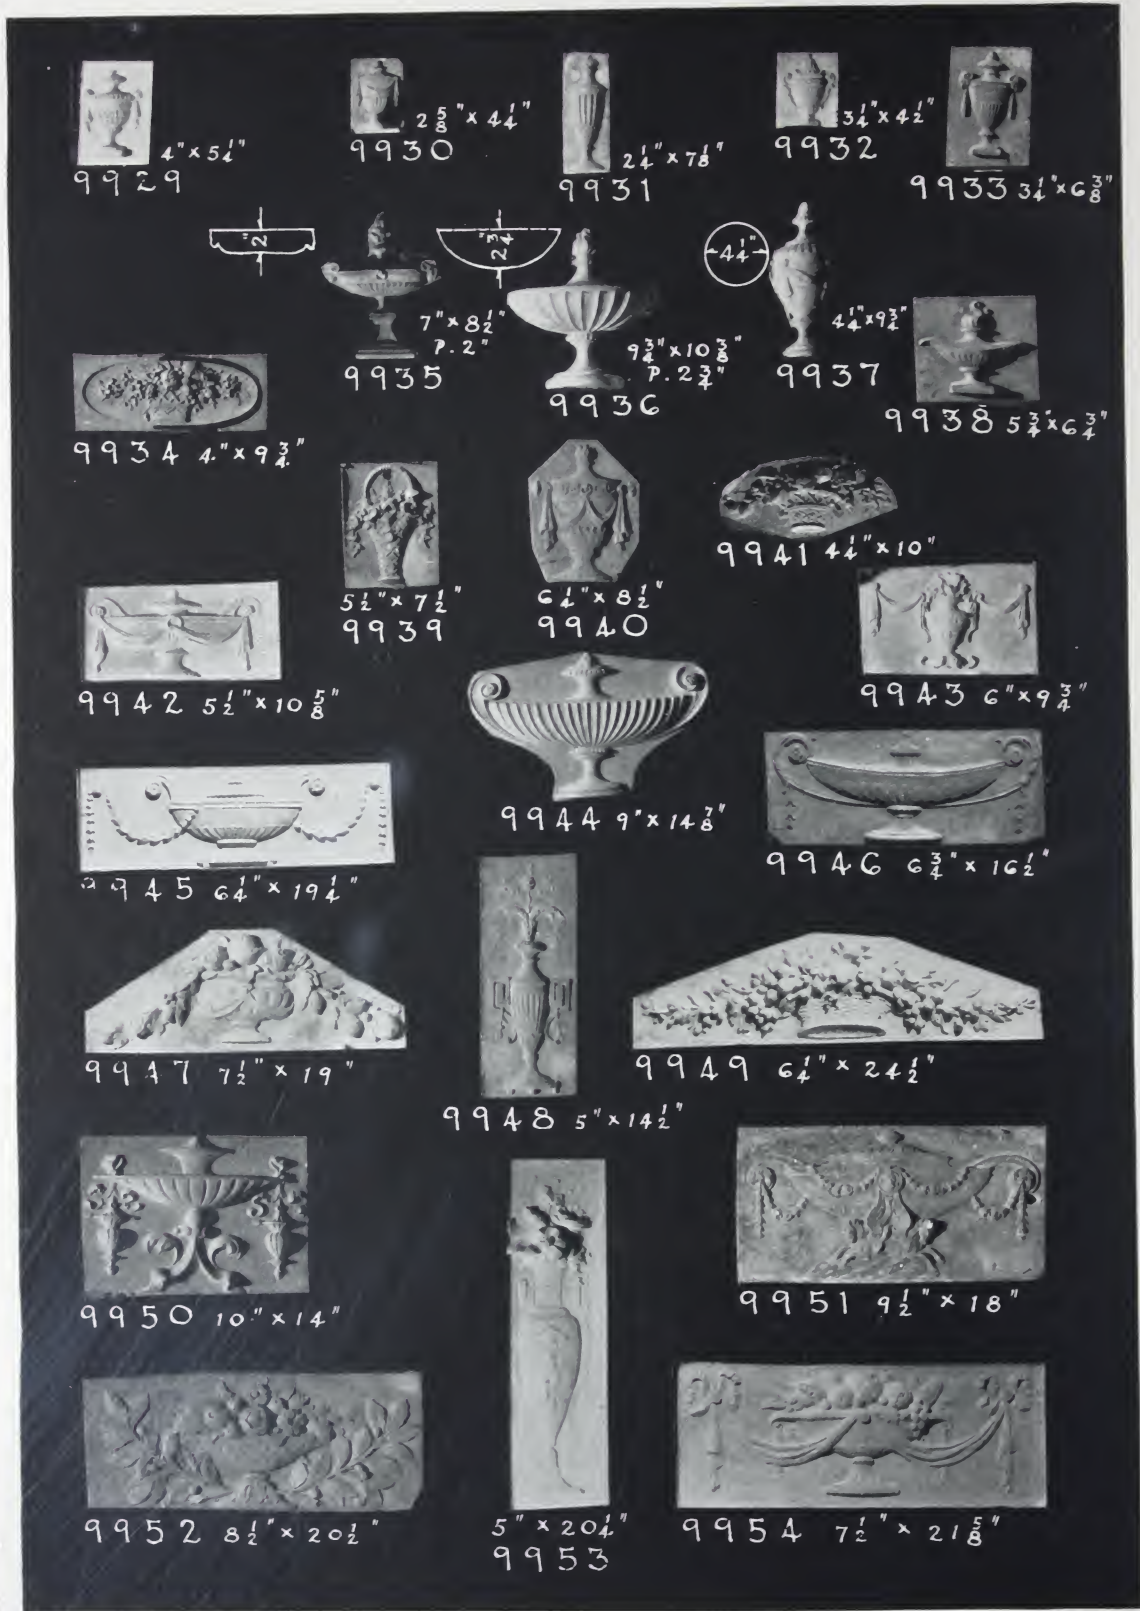 4" x 5 1/4"
9929
2 5/8" x 4 1/4"
9930
2 1/4" x 7 1/8"
9931
3 1/4" x 4 1/2"
9932
9933 3 1/4" x 6 3/8"
2"
7" x 8 1/2"
P. 2"
9935
2 3/4"
9 3/4" x 10 3/8"
P. 2 3/4"
9936
4 1/4"
4 1/4" x 9 3/4"
9937
9938 5 3/4" x 6 3/4"
9934 4" x 9 3/4"
5 1/2" x 7 1/2"
9939
6 1/4" x 8 1/2"
9940
9941 4 1/4" x 10"
9942 5 1/2" x 10 5/8"
9943 6" x 9 3/4"
9944 9" x 14 7/8"
9945 6 1/4" x 19 1/4"
9946 6 3/4" x 16 1/2"
9947 7 1/2" x 19"
9948 5" x 14 1/2"
9949 6 1/4" x 24 1/2"
9950 10" x 14"
9951 9 1/2" x 18"
9952 8 1/2" x 20 1/2"
5" x 20 1/4"
9953
9954 7 1/2" x 21 5/8"